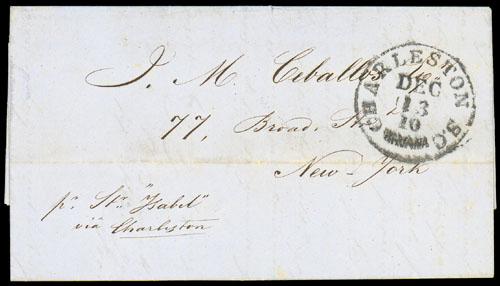 J. M. Ceballos
77, Broad St
New-York
pr. Str. "Isabel"
via Charleston
CHARLESTON S.C.
DEC
13
10